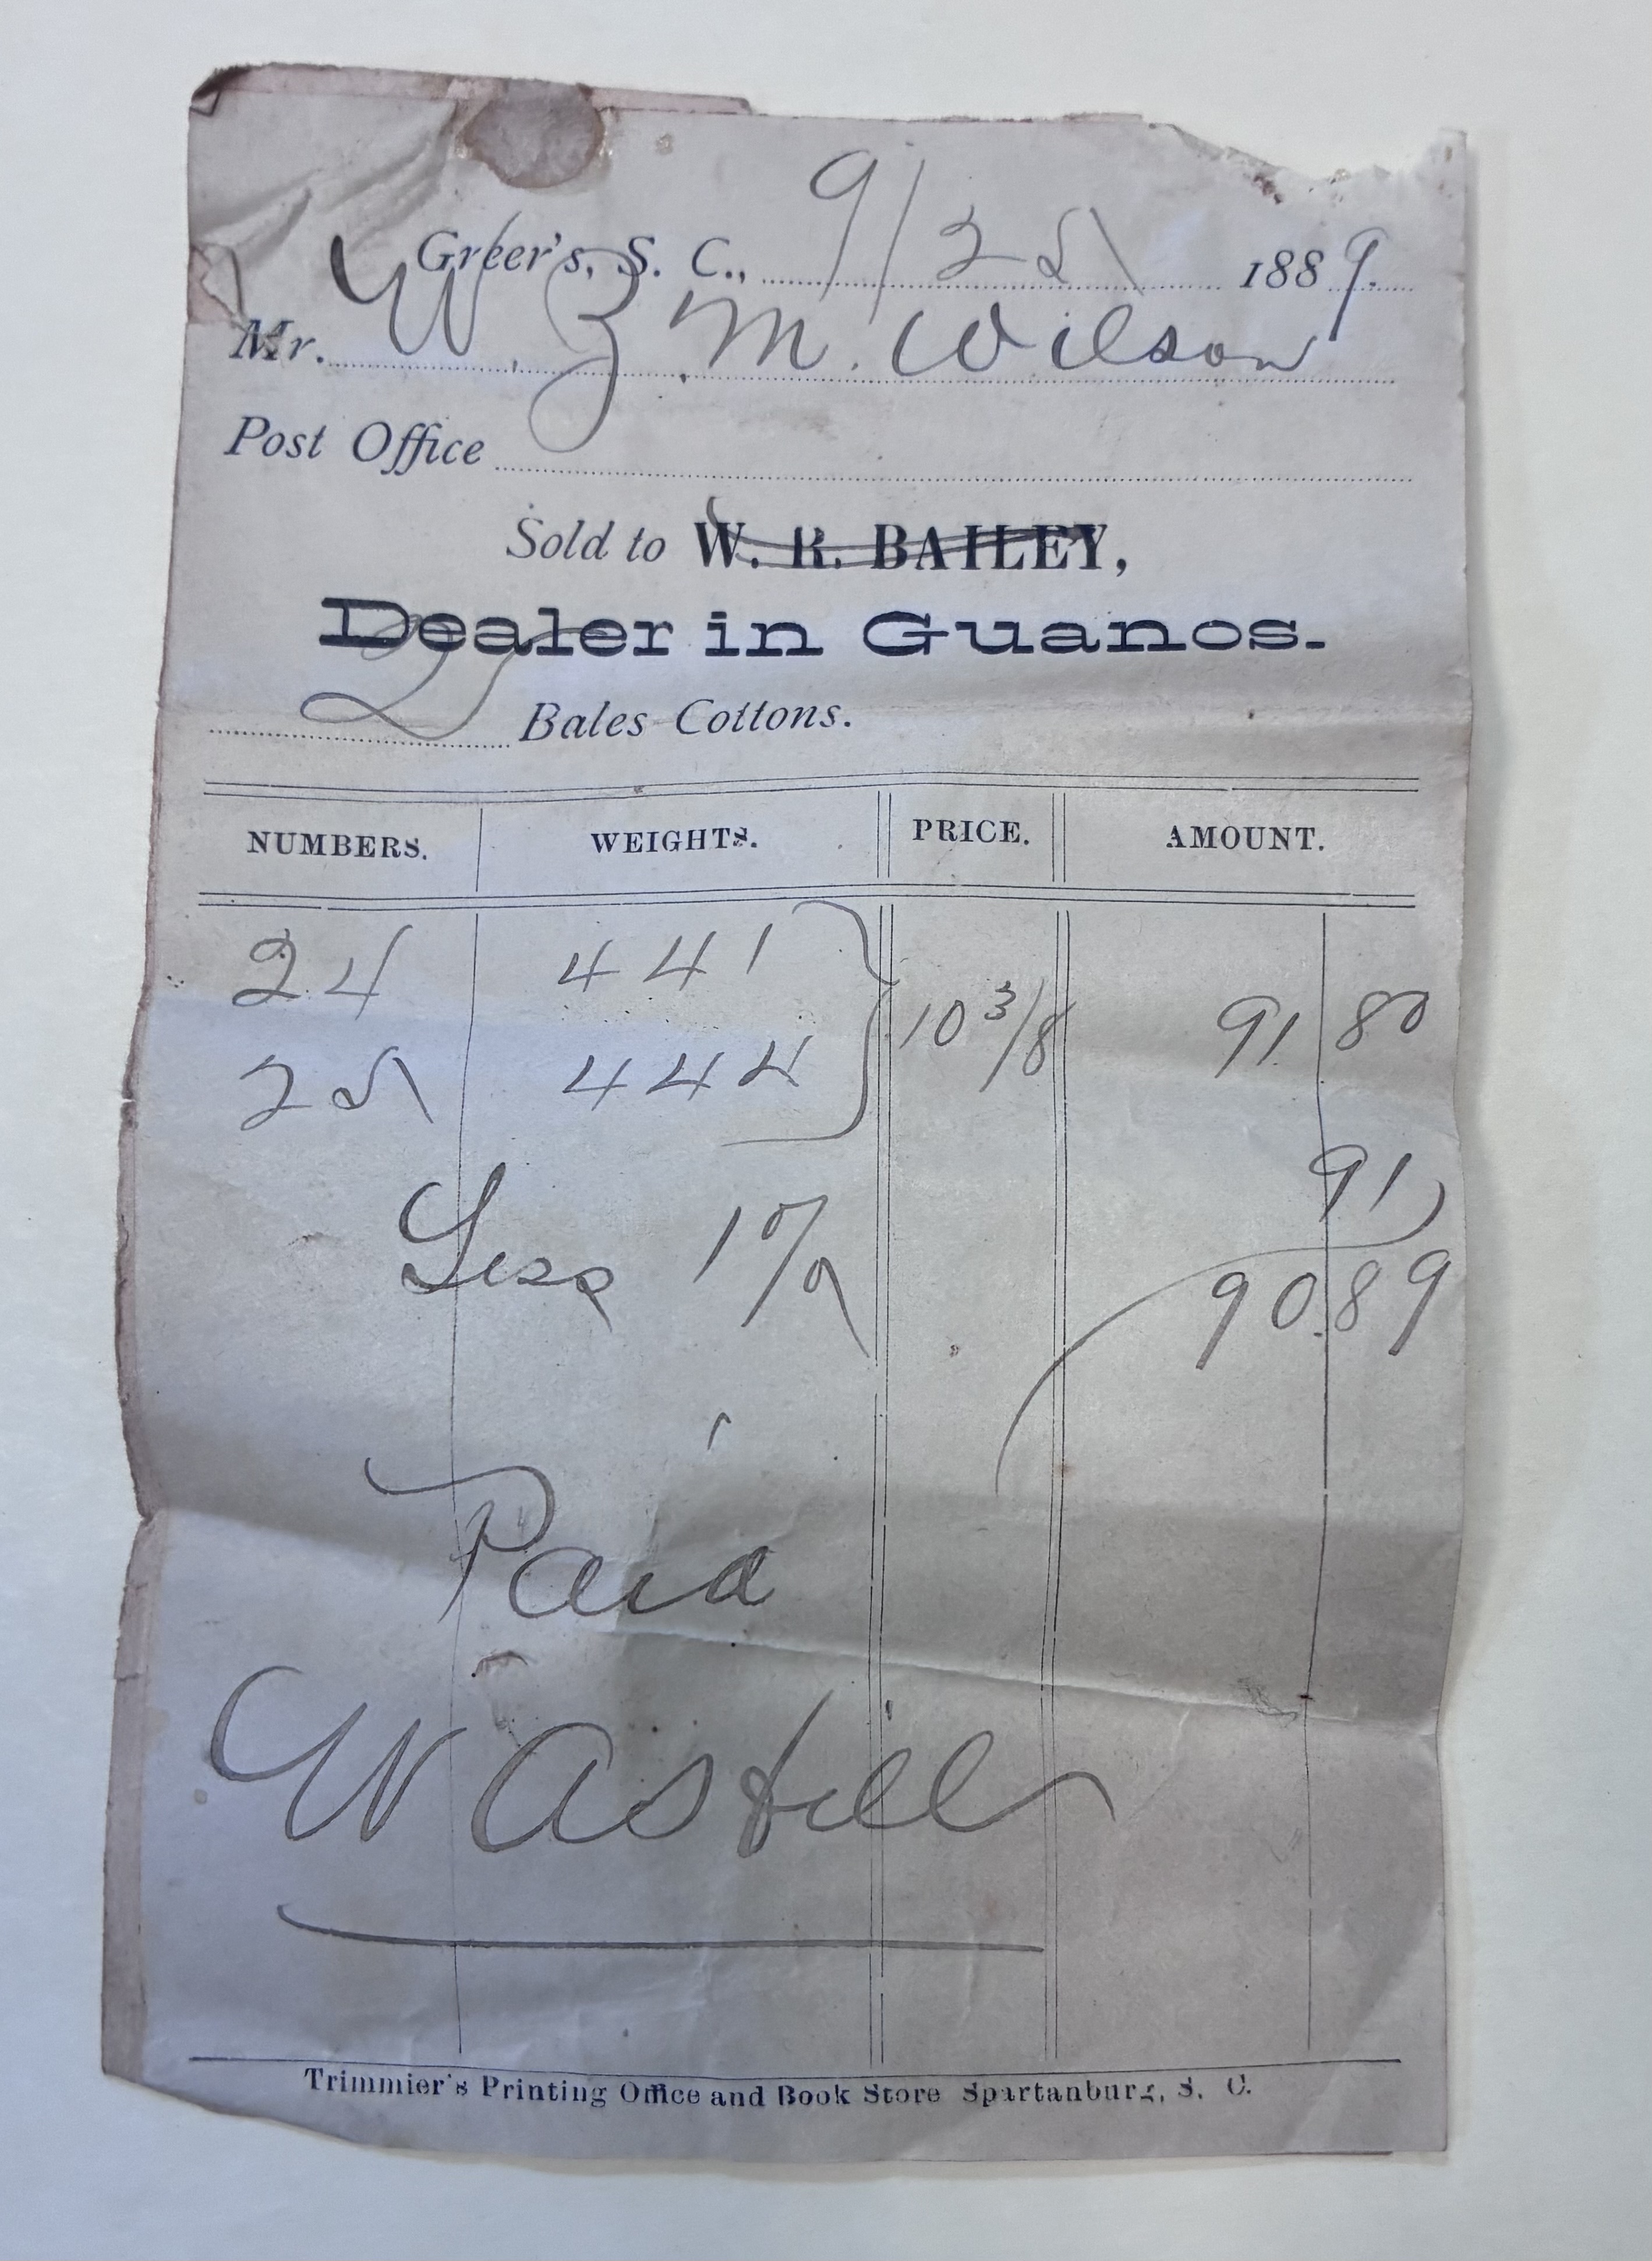 Greer's, S. C., 9/25 1889.
Mr. W. Z. M. Wilson
Post Office
Sold to W. R. BAILEY,
Dealer in Guanos.
2 Bales Cottons.
NUMBERS. WEIGHTS. PRICE. AMOUNT.
24 441 10 3/8 91.80
25 444
91
Less 1% 90.89
Paid
Trimmier's Printing Office and Book Store Spartanburg, S. C.